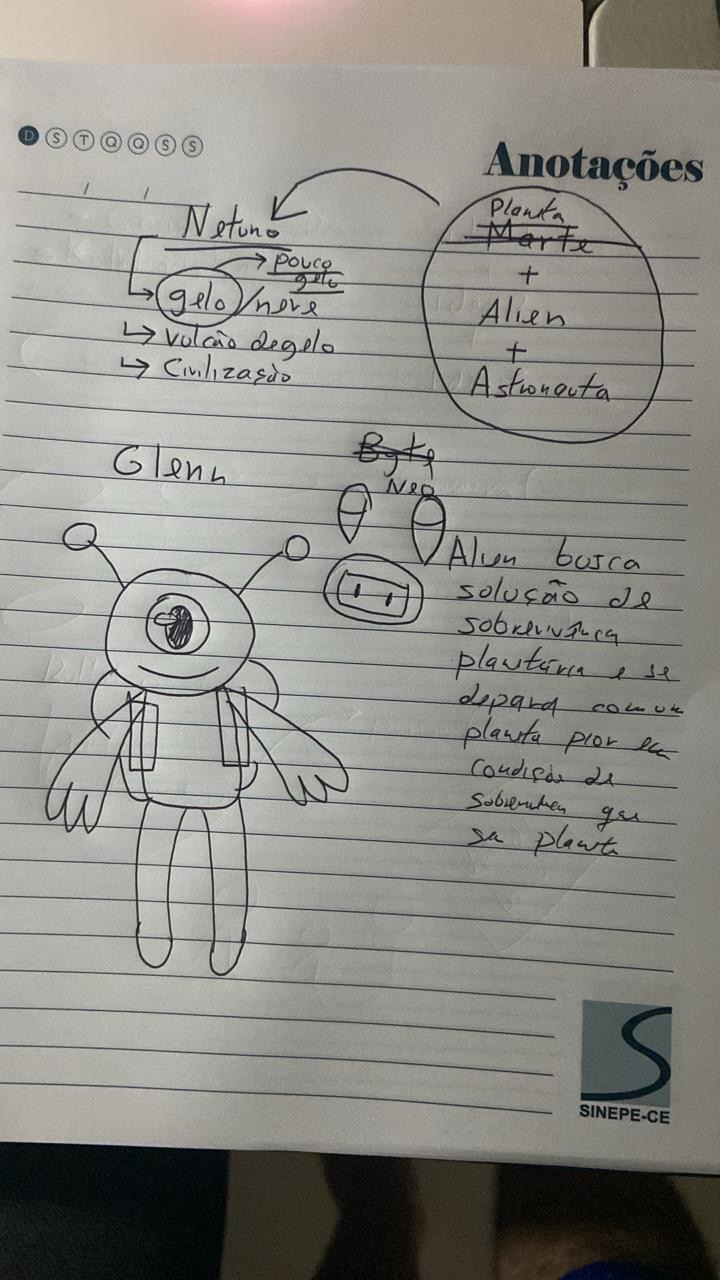 D S T Q Q S S
Anotações
/ /
Netuno
pouco
gelo
gelo/neve
↳ vulcão de gelo
↳ Civilização
Planeta
Marte
+
Alien
+
Astronauta
Glenn
Byte
Neo
Alien busca
solução de
sobrevivência
planetária e se
depara com um
planeta pior em
condição de
sobreviver que
seu planeta
S
SINEPE-CE